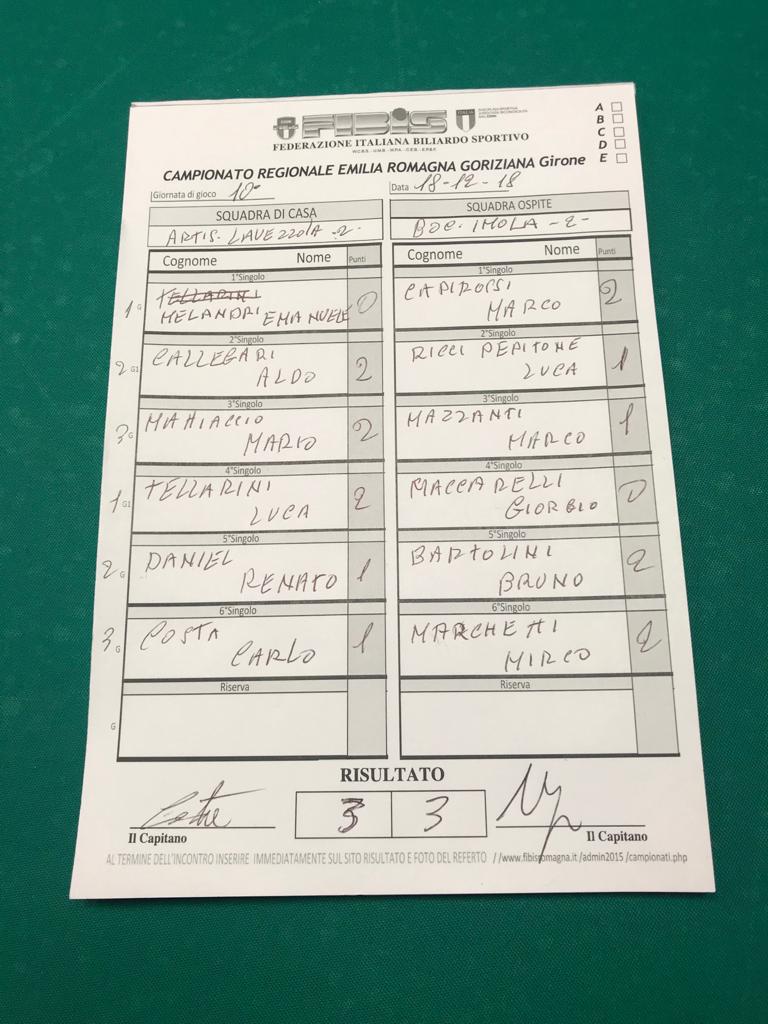 FIBIS
FEDERAZIONE ITALIANA BILIARDO SPORTIVO
CAMPIONATO REGIONALE EMILIA ROMAGNA GORIZIANA Girone
A
B
C
D
E
Giornata di gioco 10° Data 18-12-18
SQUADRA DI CASA SQUADRA OSPITE
ARTIS. LAVEZZOLA -2- BOC. IMOLA -2-
Cognome Nome Punti Cognome Nome Punti
1°Singolo 1°Singolo
TELLARINI CAPIROSSI
1 G MELANDRI EMANUELE 0 MARCO 2
2°Singolo 2°Singolo
2 G1 CALLEGARI 2 RICCI PEPITONE 1
ALDO LUCA
3°Singolo 3°Singolo
3 G 2 MAZZANTI 1
MARIO MARCO
4°Singolo 4°Singolo
1 G1 TELLARINI 2 MACCARELLI 0
LUCA GIORGIO
5°Singolo 5°Singolo
2 G DANIEL 1 BARTOLINI 2
RENATO BRUNO
6°Singolo 6°Singolo
3 G COSTA 1 MARCHETTI 2
CARLO MIRCO
Riserva Riserva
G
RISULTATO
3 3
Il Capitano Il Capitano
AL TERMINE DELL'INCONTRO INSERIRE IMMEDIATAMENTE SUL SITO RISULTATO E FOTO DEL REFERTO //www.fibisromagna.it/admin2015/campionati.php